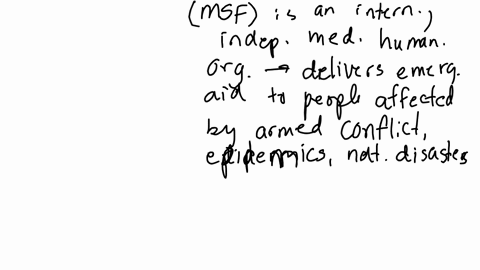 (MSF) is an intern.,
indep. med. human.
org. → delivers emerg.
aid to people affected
by armed conflict,
epidemics, nat. disaster